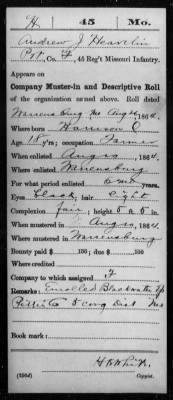 H 45 Mo.
Andrew J Heavelin
Pvt., Co. F, 45 Reg't Missouri Infantry.
Appears on
Company Muster-in and Descriptive Roll
of the organization named above. Roll dated
Warrensburg Mo Aug 24, 1864.
Where born Harrison O
Age 18 y'rs; occupation Farmer
When enlisted Aug 20, 1864.
Where enlisted Warrensburg
For what period enlisted 6 mo years.
Eyes Black; hair light
Complexion fair; height 5 ft. 5 in.
When mustered in Aug 20, 1864.
Where mustered in Warrensburg
Bounty paid $ 100; due $ 100
Where credited
Company to which assigned F
Remarks: Enrolled Blackwater Tp
Pettis Co 5 Cong Dist Mo
Book mark:
H B White
(356d) Copyist.